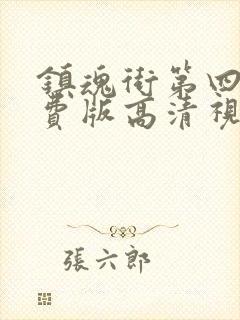 鎮魂街第四
費版高清視
張六郎